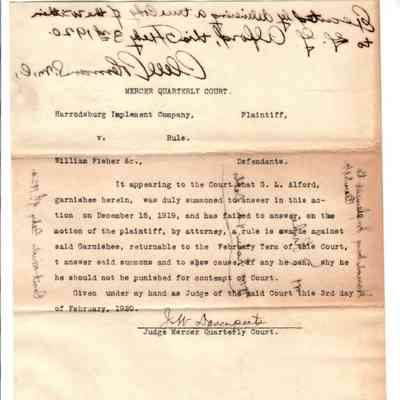 Executed by delivering a true copy of the within
to G. L. Alford, this Feby 3rd 1920.
MERCER QUARTERLY COURT.
Harrodsburg Implement Company, Plaintiff,
v. Rule.
William Fisher &c., Defendants.
It appearing to the Court that G. L. Alford,
garnishee herein, was duly summoned to answer in this ac-
tion on December 15, 1919, and has failed to answer, on the
motion of the plaintiff, by attorney, a rule is against
said Garnishee, returnable to the February Term of this Court,
t answer said summons and to show cause, if any he can, why he
he should not be punished for contempt of Court.
Given under my hand as Judge of the said Court this 3rd day
of February, 1920.
Judge Mercer Quarterly Court.